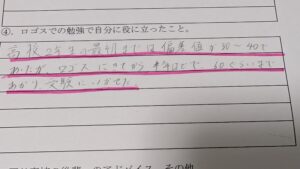 ④. ロゴスでの勉強で自分に役に立ったこと。
高校2年生の最初までは偏差値が30~40で
あったが、ロゴスに来てから半年ほどで60くらいまで
あがり受験にいかせた。